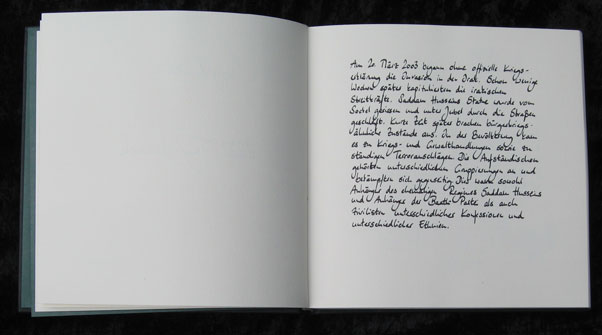 Am 20. März 2003 begann ohne offizielle Kriegs-
erklärung die Invasion in den Irak. Schon wenige
Wochen später kapitulierten die irakischen
Streitkräfte. Saddam Husseins Statue wurde vom
Sockel gerissen und unter Jubel durch die Straßen
geschleift. Kurze Zeit später brachen bürgerkriegs-
ähnliche Zustände aus. In der Bevölkerung kam
es zu Kriegs- und Gewalthandlungen sowie zu
ständigen Terroranschlägen. Die Aufständischen
gehörten unterschiedlichen Gruppierungen an und
bekämpften sich gegenseitig. Dies waren sowohl
Anhänger des ehemaligen Regimes Saddam Husseins
und Anhänger der Baath Partei als auch
Zivilisten unterschiedlicher Konfessionen und
unterschiedlicher Ethnien.